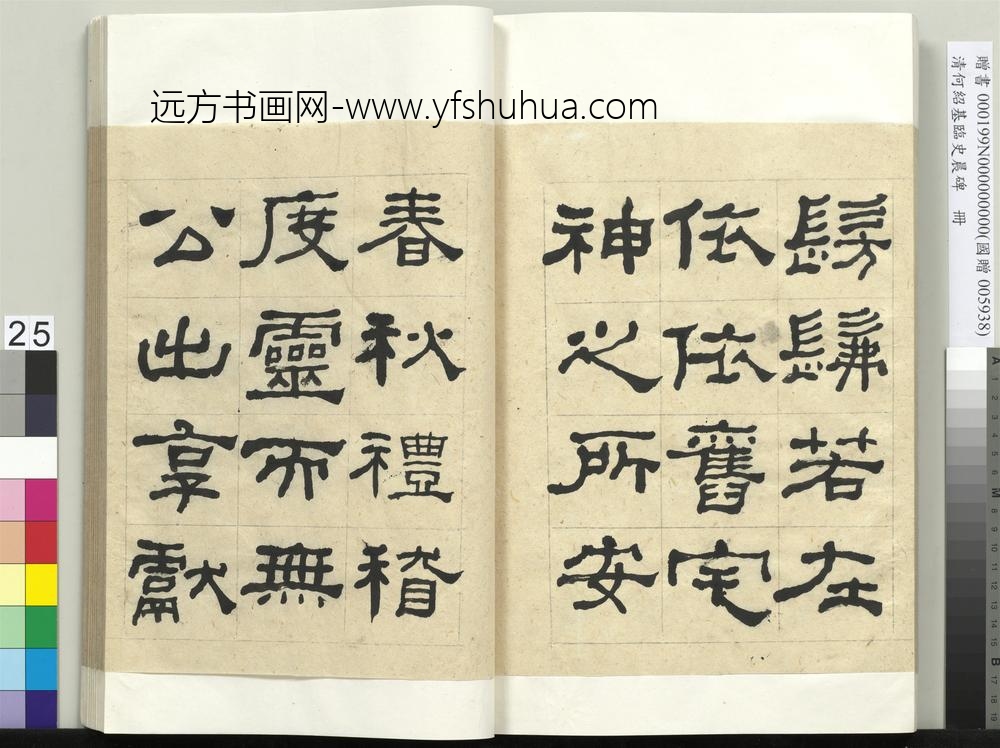 远方书画网-www.yfshuhua.com
髣髴若在
依依舊宅
神之所安
春秋禮稽
度靈而無
公出享獻
贈書 000199N000000000(國贈 005938)
清何紹基臨史晨碑 冊
25
A 1 2 3 4 5 6 M 8 9 10 11 12 13 14 15 B 17 18 19